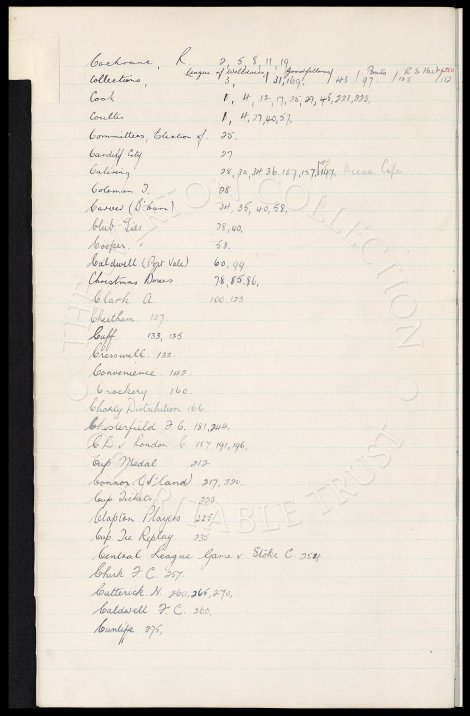 Cochrane, R 2, 5, 8, 11, 19
Collections, League of Wellwishers 3, / 31, 169, Goodfellows / 43 / Boots 97 / 108 R. S. Hospital
Cook 1, 4, 12, 17, 25, 29, 45, 221, 223,
Coulter 1, 4, 29, 40, 57,
Committees, Election of. 25.
Cardiff City 27
Catering 28, 30, 34, 36, 107, 197, Mecca Cafe
Coleman J. 28
Carver (O'burn) 34, 35, 40, 58,
Club Ties 38, 40,
Cooper. 58,
Caldwell (Port Vale) 60, 99
Christmas Boxes 78, 85, 86,
Clark A. 100. 123.
Cheetham. 107.
Cuff 133, 135
Cresswell. 133.
Convenience. 142.
Crockery 160.
Charity Distribution 166.
Chesterfield F. C. 181, 244.
C L v London C 187, 191, 196,
Cup Medal 212.
Connor (S'land) 217, 220,
Cup Tickets 223
Clapton Players 225
Cup Tie Replay 235
Central League Game v Stoke C. 254
Chirk F. C. 257.
Catterick. H. 260, 265, 270,
Caldwell F. C. 260,
Cunliffe 275,
THE EVERTON COLLECTION
CHARITABLE TRUST